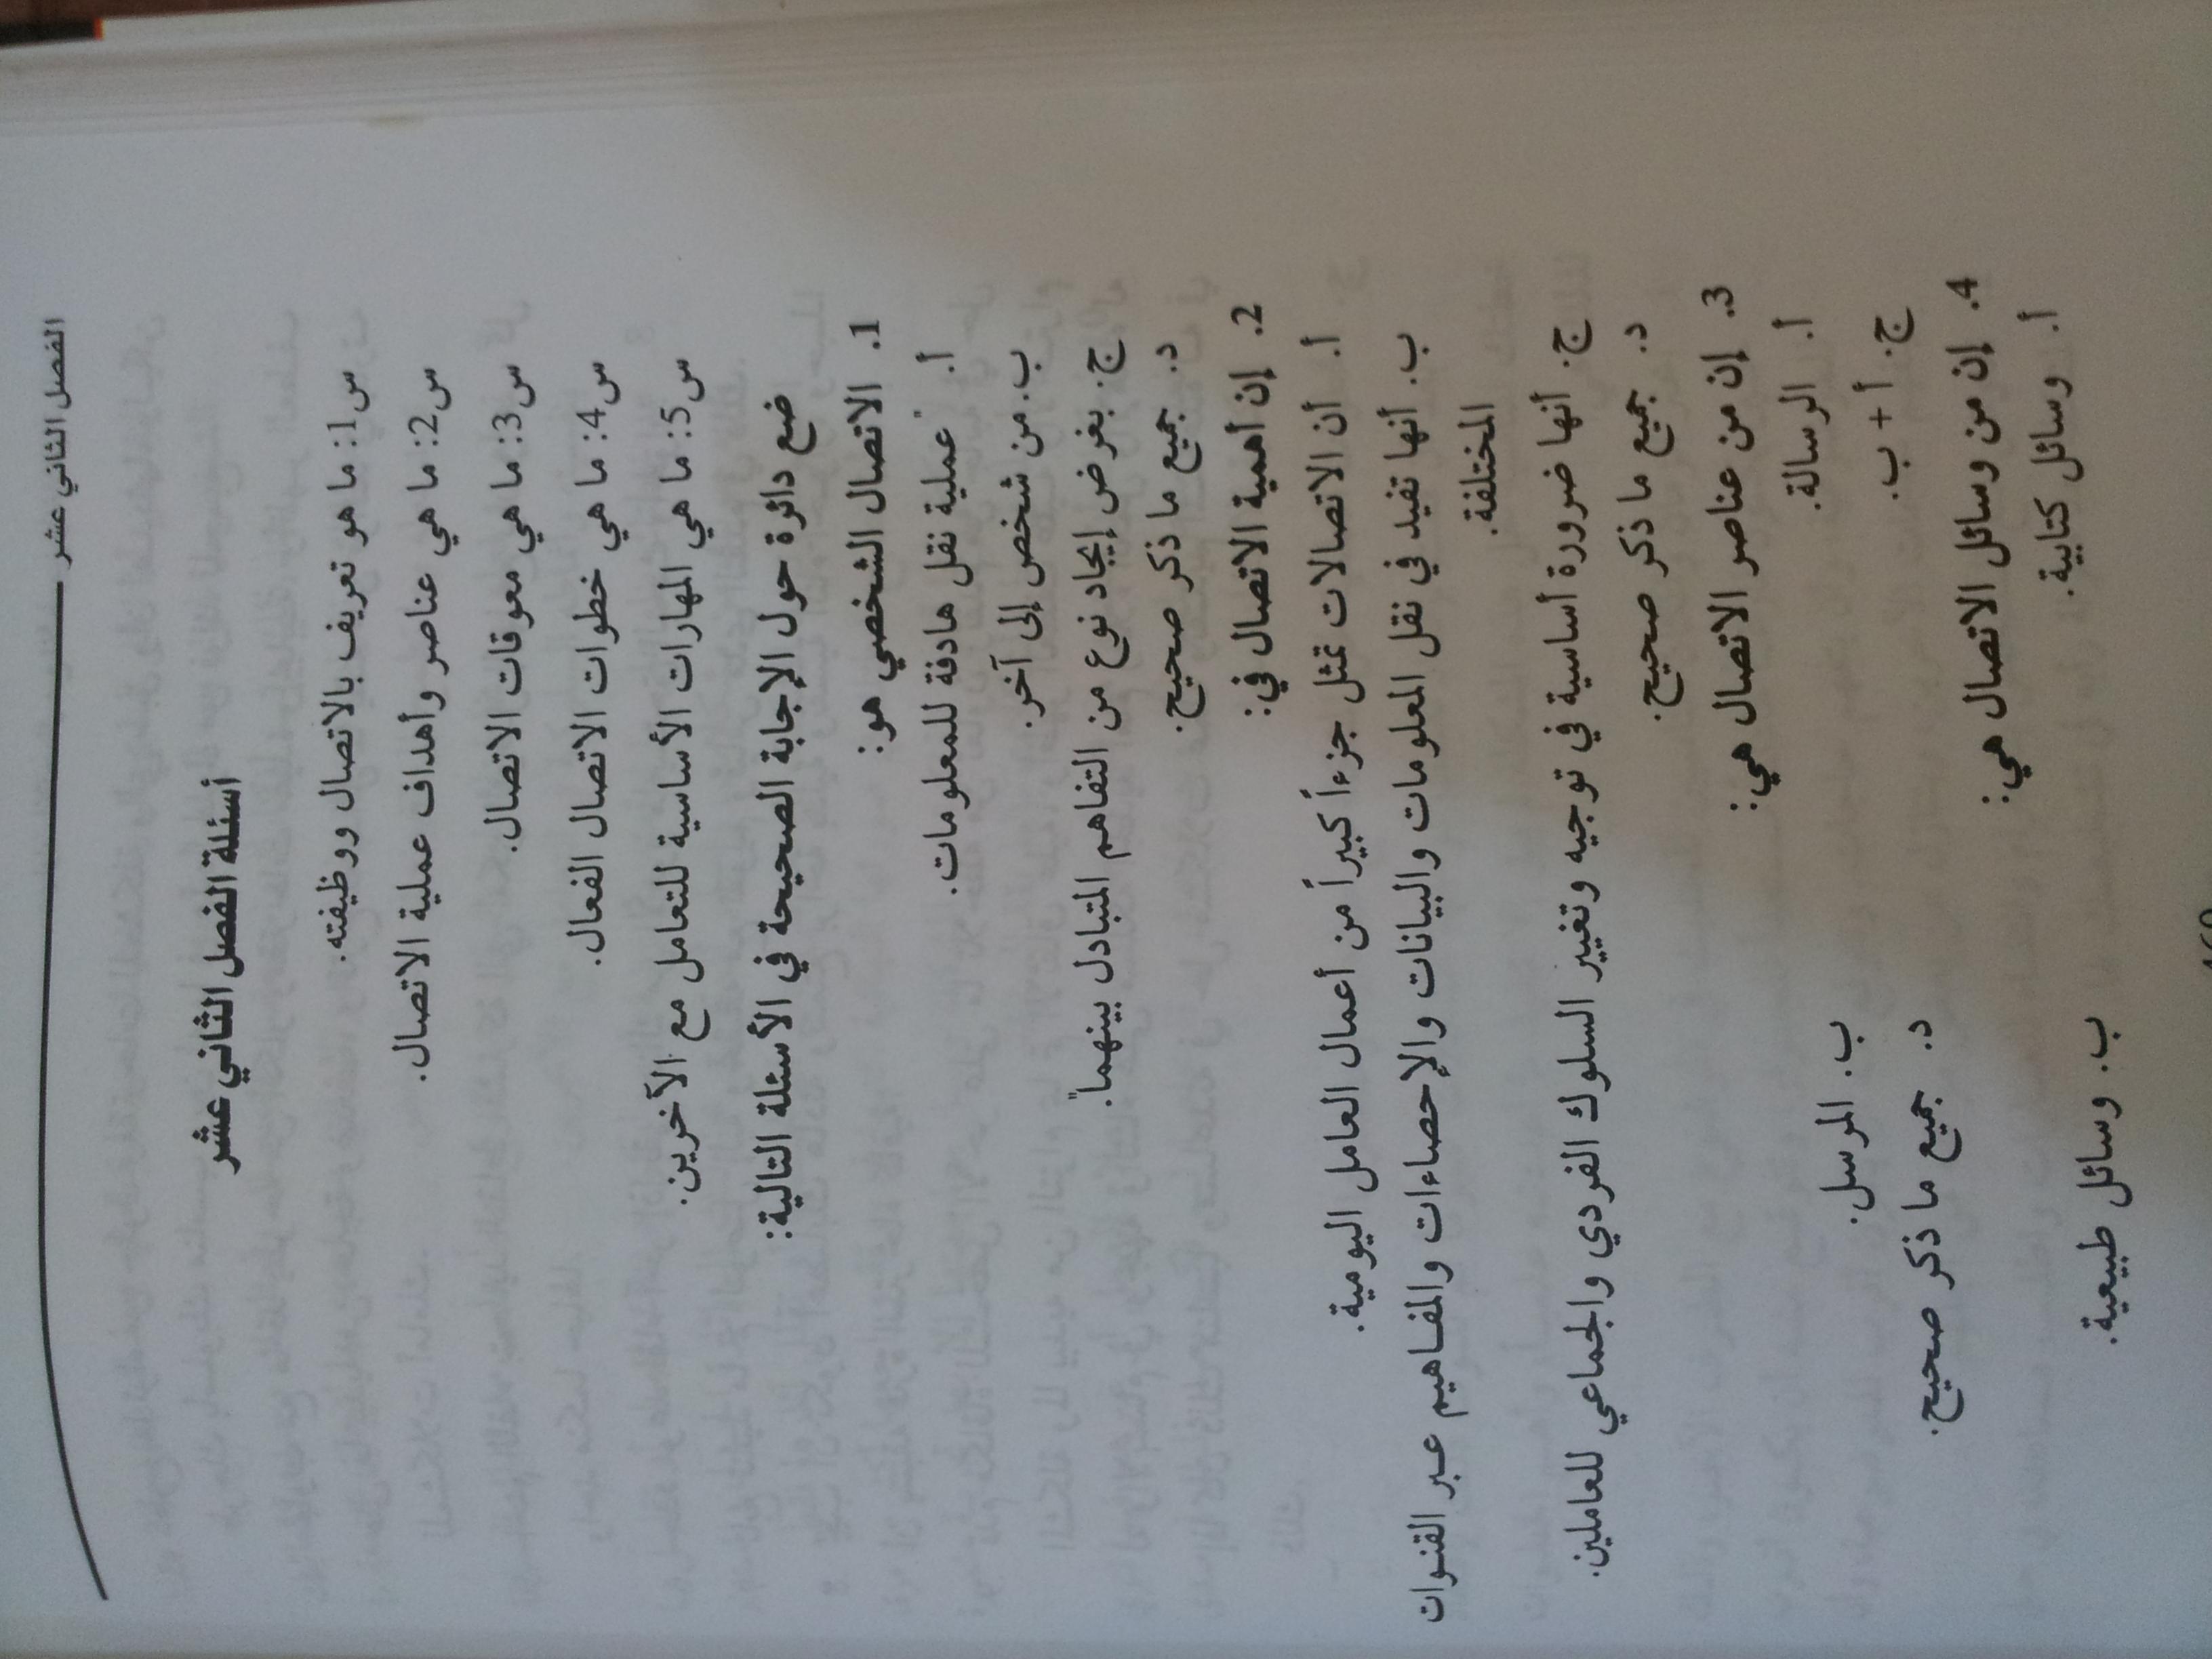 الفصل الثاني عشر
أسئلة الفصل الثاني عشر
س1: ما هو تعريف بالاتصال ووظيفته.
س2: ما هي عناصر وأهداف عملية الاتصال.
س3: ما هي معوقات الاتصال.
س4: ما هي خطوات الاتصال الفعال.
س5: ما هي المهارات الأساسية للتعامل مع الآخرين.
ضع دائرة حول الإجابة الصحيحة في الأسئلة التالية:
1. الاتصال الشخصي هو:
أ. "عملية نقل هادفة للمعلومات.
ب. من شخص إلى آخر.
ج. بغرض إيجاد نوع من التفاهم المتبادل بينهما".
د. جميع ما ذكر صحيح.
2. إن أهمية الاتصال في:
أ. أن الاتصالات تمثل جزءاً كبيراً من أعمال العامل اليومية.
ب. أنها تفيد في نقل المعلومات والبيانات والإحصاءات والمفاهيم عبر القنوات
المختلفة.
ج. أنها ضرورة أساسية في توجيه وتغيير السلوك الفردي والجماعي للعاملين.
د. جميع ما ذكر صحيح.
3. إن من عناصر الاتصال هي:
أ. الرسالة. ب. المرسل.
ج. أ + ب. د. جميع ما ذكر صحيح.
4. إن من وسائل الاتصال هي:
أ. وسائل كتابية. ب. وسائل طبيعية.